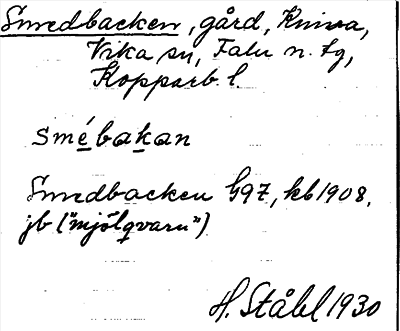 Smedbacken, gård, Kniva,
Vika sn, Falu n. tg,
Kopparb. l.
smébakan
Smedbacken G97, kb 1908,
jb ("mjölqvarn")
H. Ståhl 1930